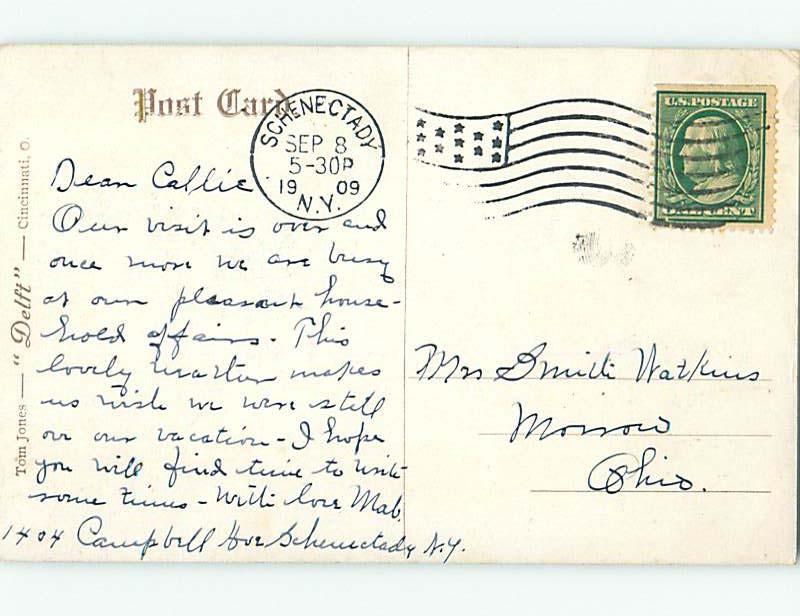 Post Card
SCHENECTADY
SEP 8
5-30P
19 09
N.Y.
U.S. POSTAGE
ONE CENT
Tom Jones — "Delft" — Cincinnati, O.
Dear Callie
Our visit is over and
once more we are busy
at our pleasant house-
hold affairs. This
lovely weather makes
us wish we were still
on our vacation - I hope
you will find time to write
some times - With love Mab.
1404 Campbell Ave Schenectady N.Y.
Mrs Smith Watkins
Morrow
Ohio.